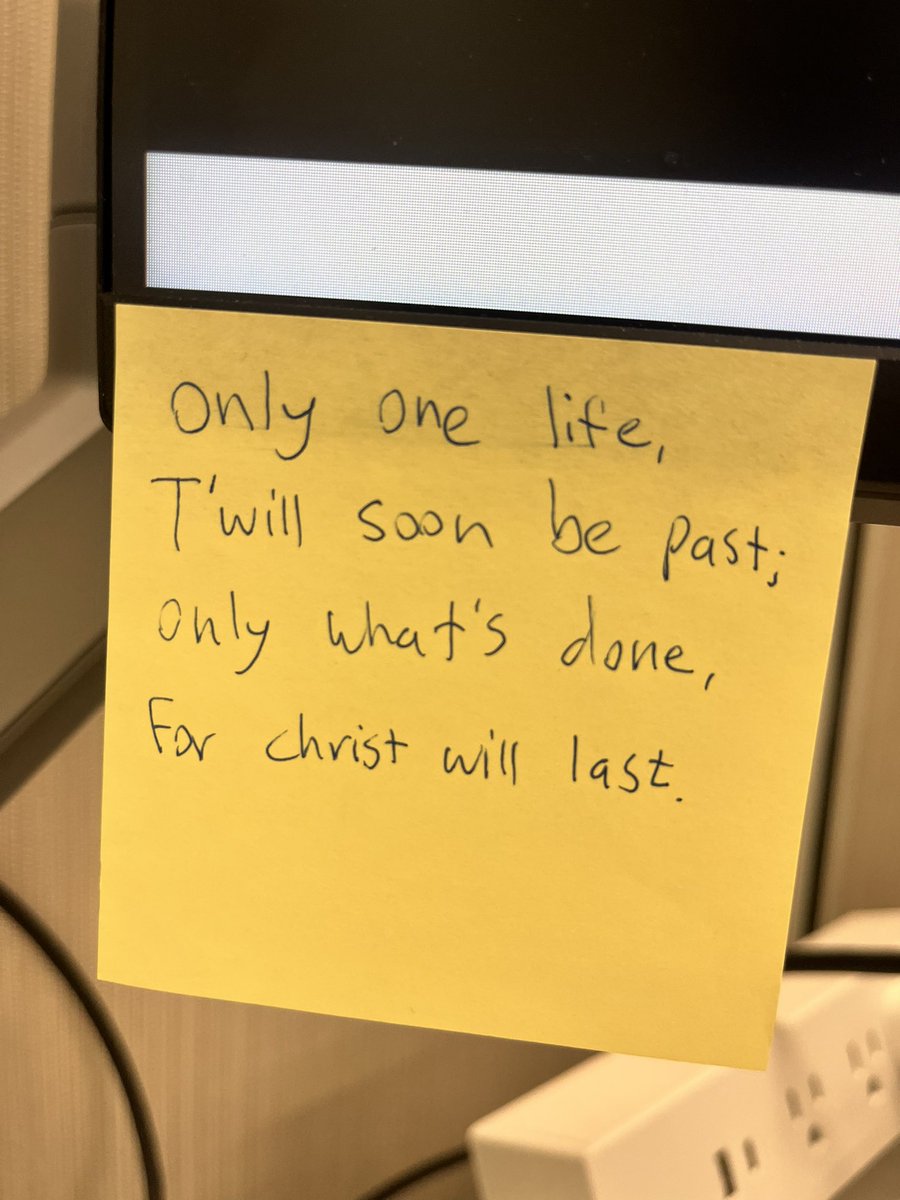 Only one life,
T'will soon be past;
Only what's done,
For Christ will last.